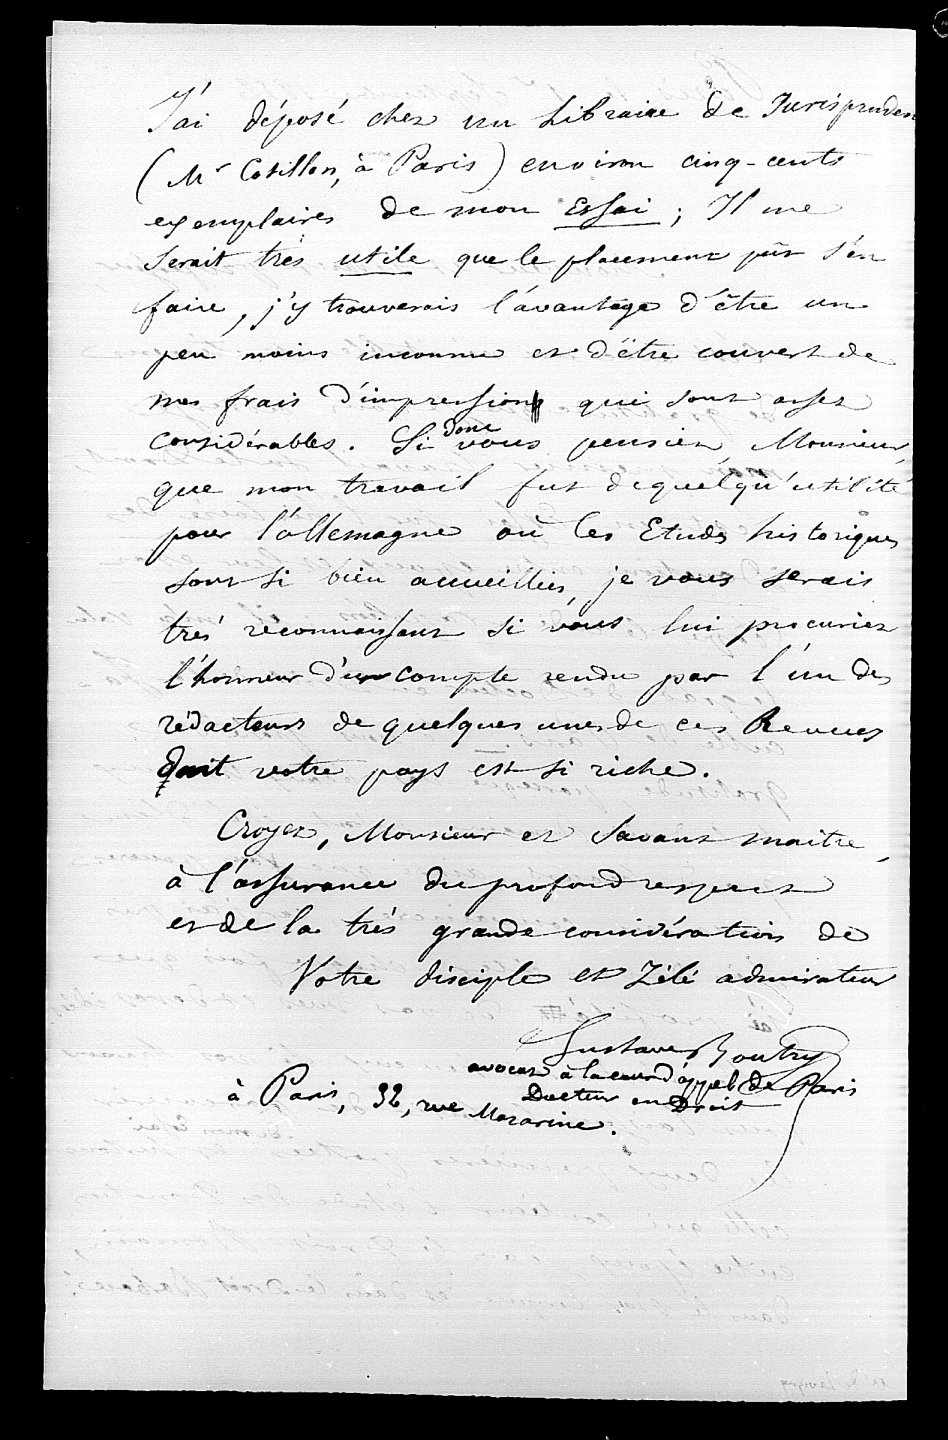 J'ai déposé chez un Libraire de Jurisprudence
(Mr Cotillon, à Paris) environ cinq-cents
exemplaires de mon Essai ; Il me
serait très utile que le placement pût s'en
faire, j'y trouverais l'avantage d'être un
peu moins inconnu et d'être couvert de
mes frais d'impression qui sont assez
considérables. Si donc vous pensiez, Monsieur,
que mon travail fut de quelqu'utilité
pour l'allemagne où les Etudes historiques
sont si bien accueillies, je vous serais
très reconnaissant si vous lui procuriez
l'honneur d'un compte rendu par l'un des
rédacteurs de quelques unes de ces Revues
dont votre pays est si riche.
Croyez, Monsieur et Savant maître,
à l'assurance du profond respect
et de la très grande considération de
Votre disciple et Zélé admirateur
Gustave Boutry
avocat à la cour d'appel de Paris
Docteur en Droit
à Paris, 32, rue Mazarine.